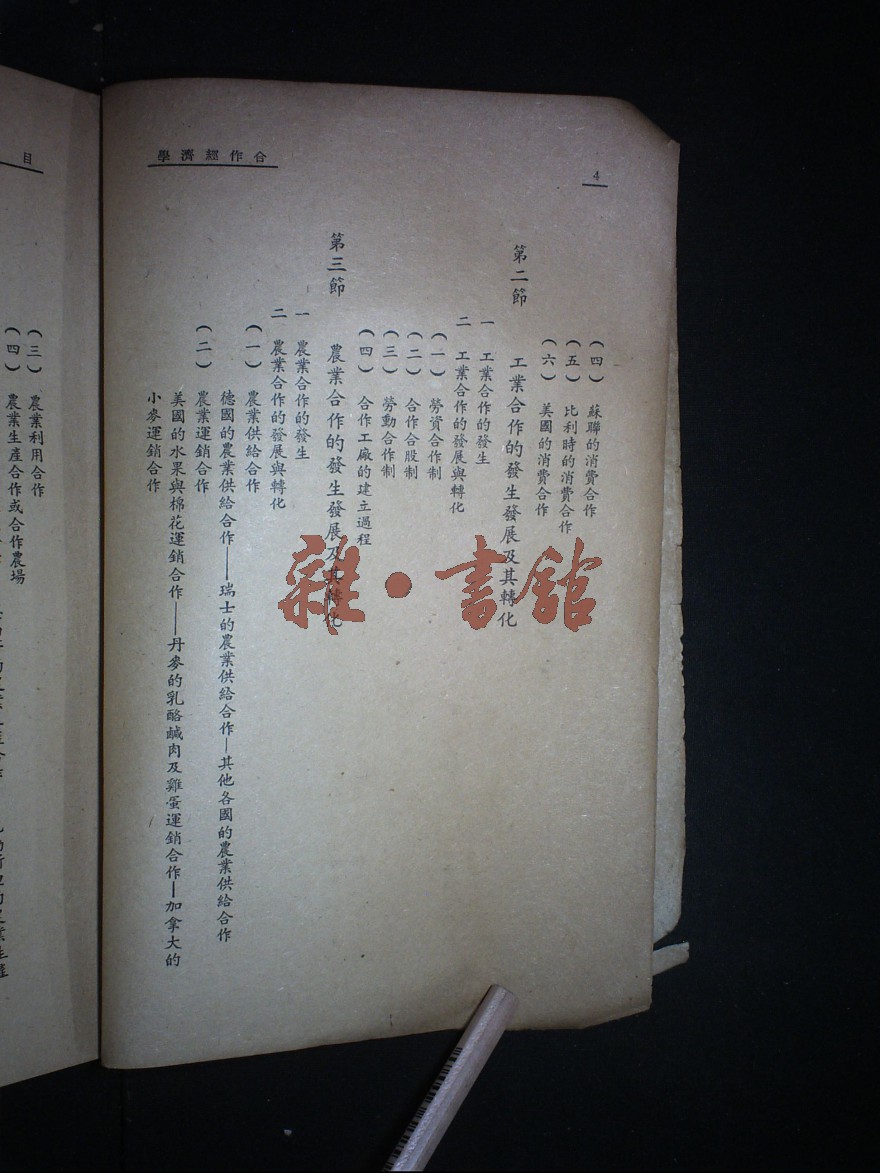 合作經濟學
4
（四） 蘇聯的消費合作
（五） 比利時的消費合作
（六） 美國的消費合作
第二節 工業合作的發生發展及其轉化
一 工業合作的發生
二 工業合作的發展與轉化
（一） 勞資合作制
（二） 合作合股制
（三） 勞動合作制
（四） 合作工廠的建立過程
第三節 農業合作的發生發展及其轉化
一 農業合作的發生
二 農業合作的發展與轉化
（一） 農業供給合作
德國的農業供給合作——瑞士的農業供給合作—其他各國的農業供給合作
（二） 農業運銷合作
美國的水果與棉花運銷合作——丹麥的乳酪鹹肉及雞蛋運銷合作—加拿大的
小麥運銷合作
目
（三） 農業利用合作
（四） 農業生產合作或合作農場
雜·書館